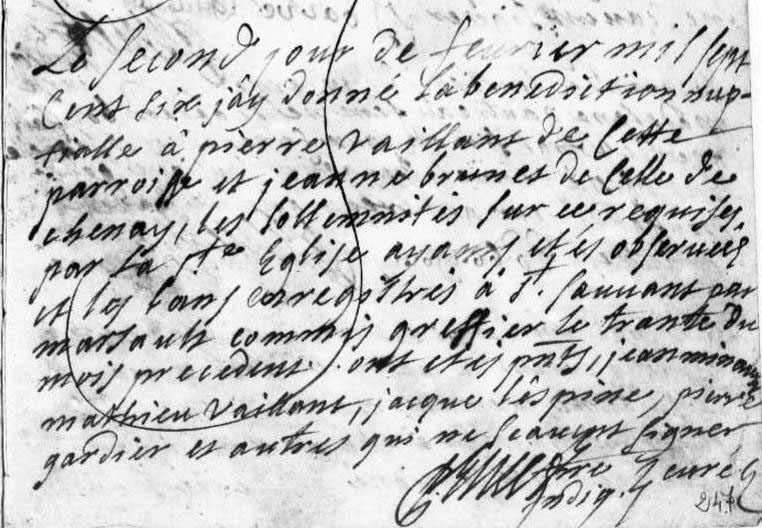 Le second jour de feuvrier mil sept
cent six jây donné la benediction nup-
tialle â pierre vaillant de cette
parroisse et jeanne brunet de celle de
chenay, les sollemnités sur ce requises
par la Ste Eglise ayans etés observeés
et les bans enregistrés â St. sauvant par
marsault commis greffier le trante du
mois precedent. ont etés pnts, jean
mathieu vaillant, jacque lespine, pierre
gardier et autres qui ne scavent signer
curé
indig.
247